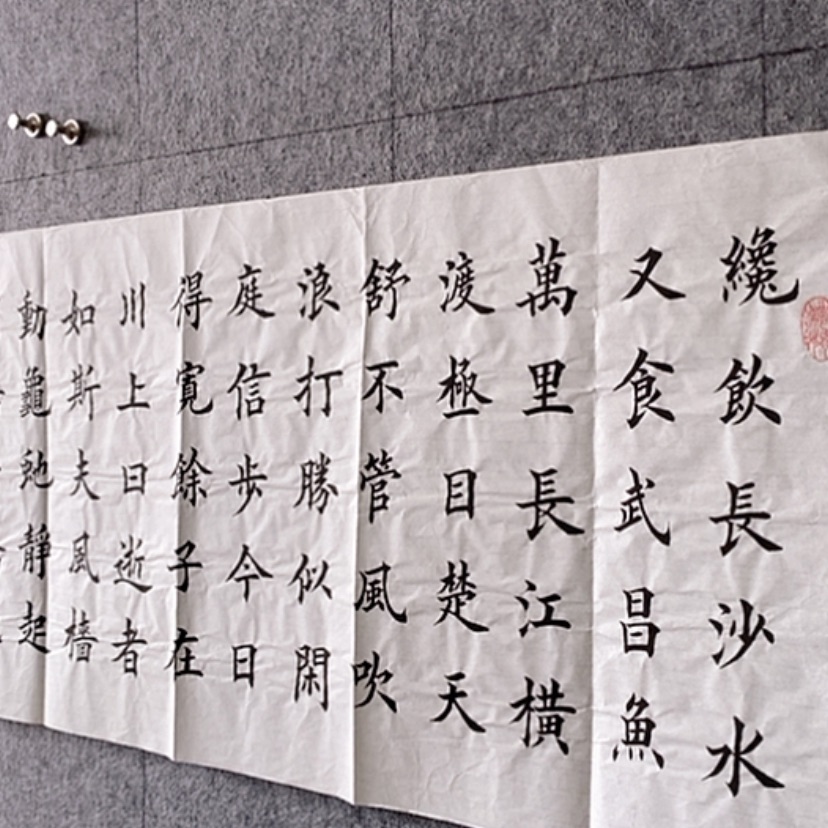 纔飲長沙水
又食武昌魚
萬里長江橫
渡極目楚天
舒不管風吹
浪打勝似閑
庭信步今日
得寬餘子在
川上曰逝者
如斯夫風檣
動龜虵靜起